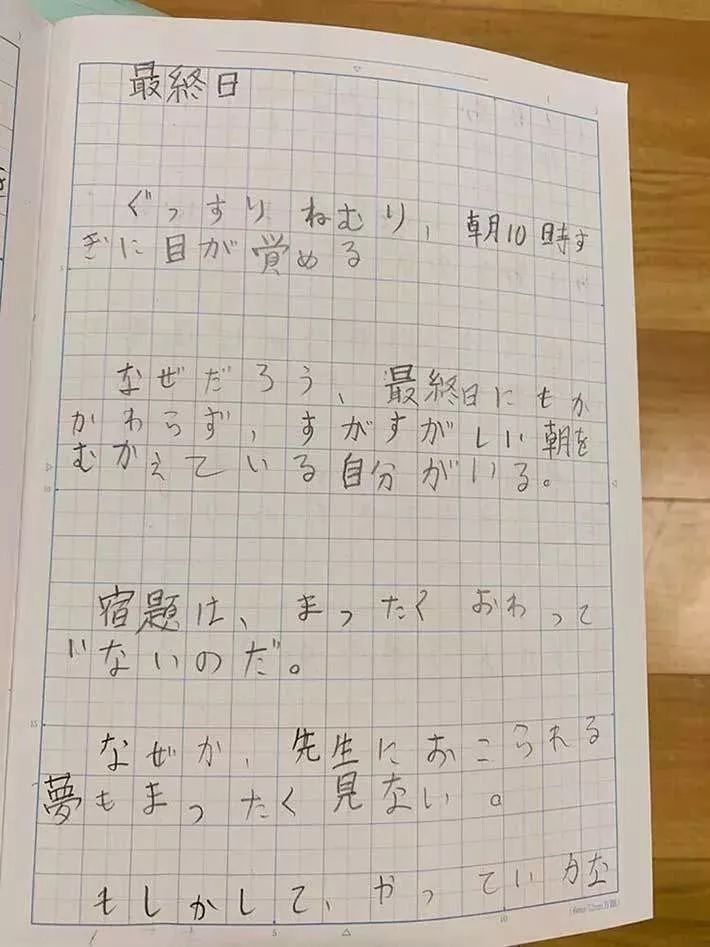 最終日
ぐっすりねむり、朝10時す
ぎに目が覚める
なぜだろう、最終日にもか
かわらず、すがすがしい朝を
むかえている自分がいる。
宿題は、まったくおわって
いないのだ。
なぜか、先生におこられる
夢もまったく見ない。
もしかして、やっていかな